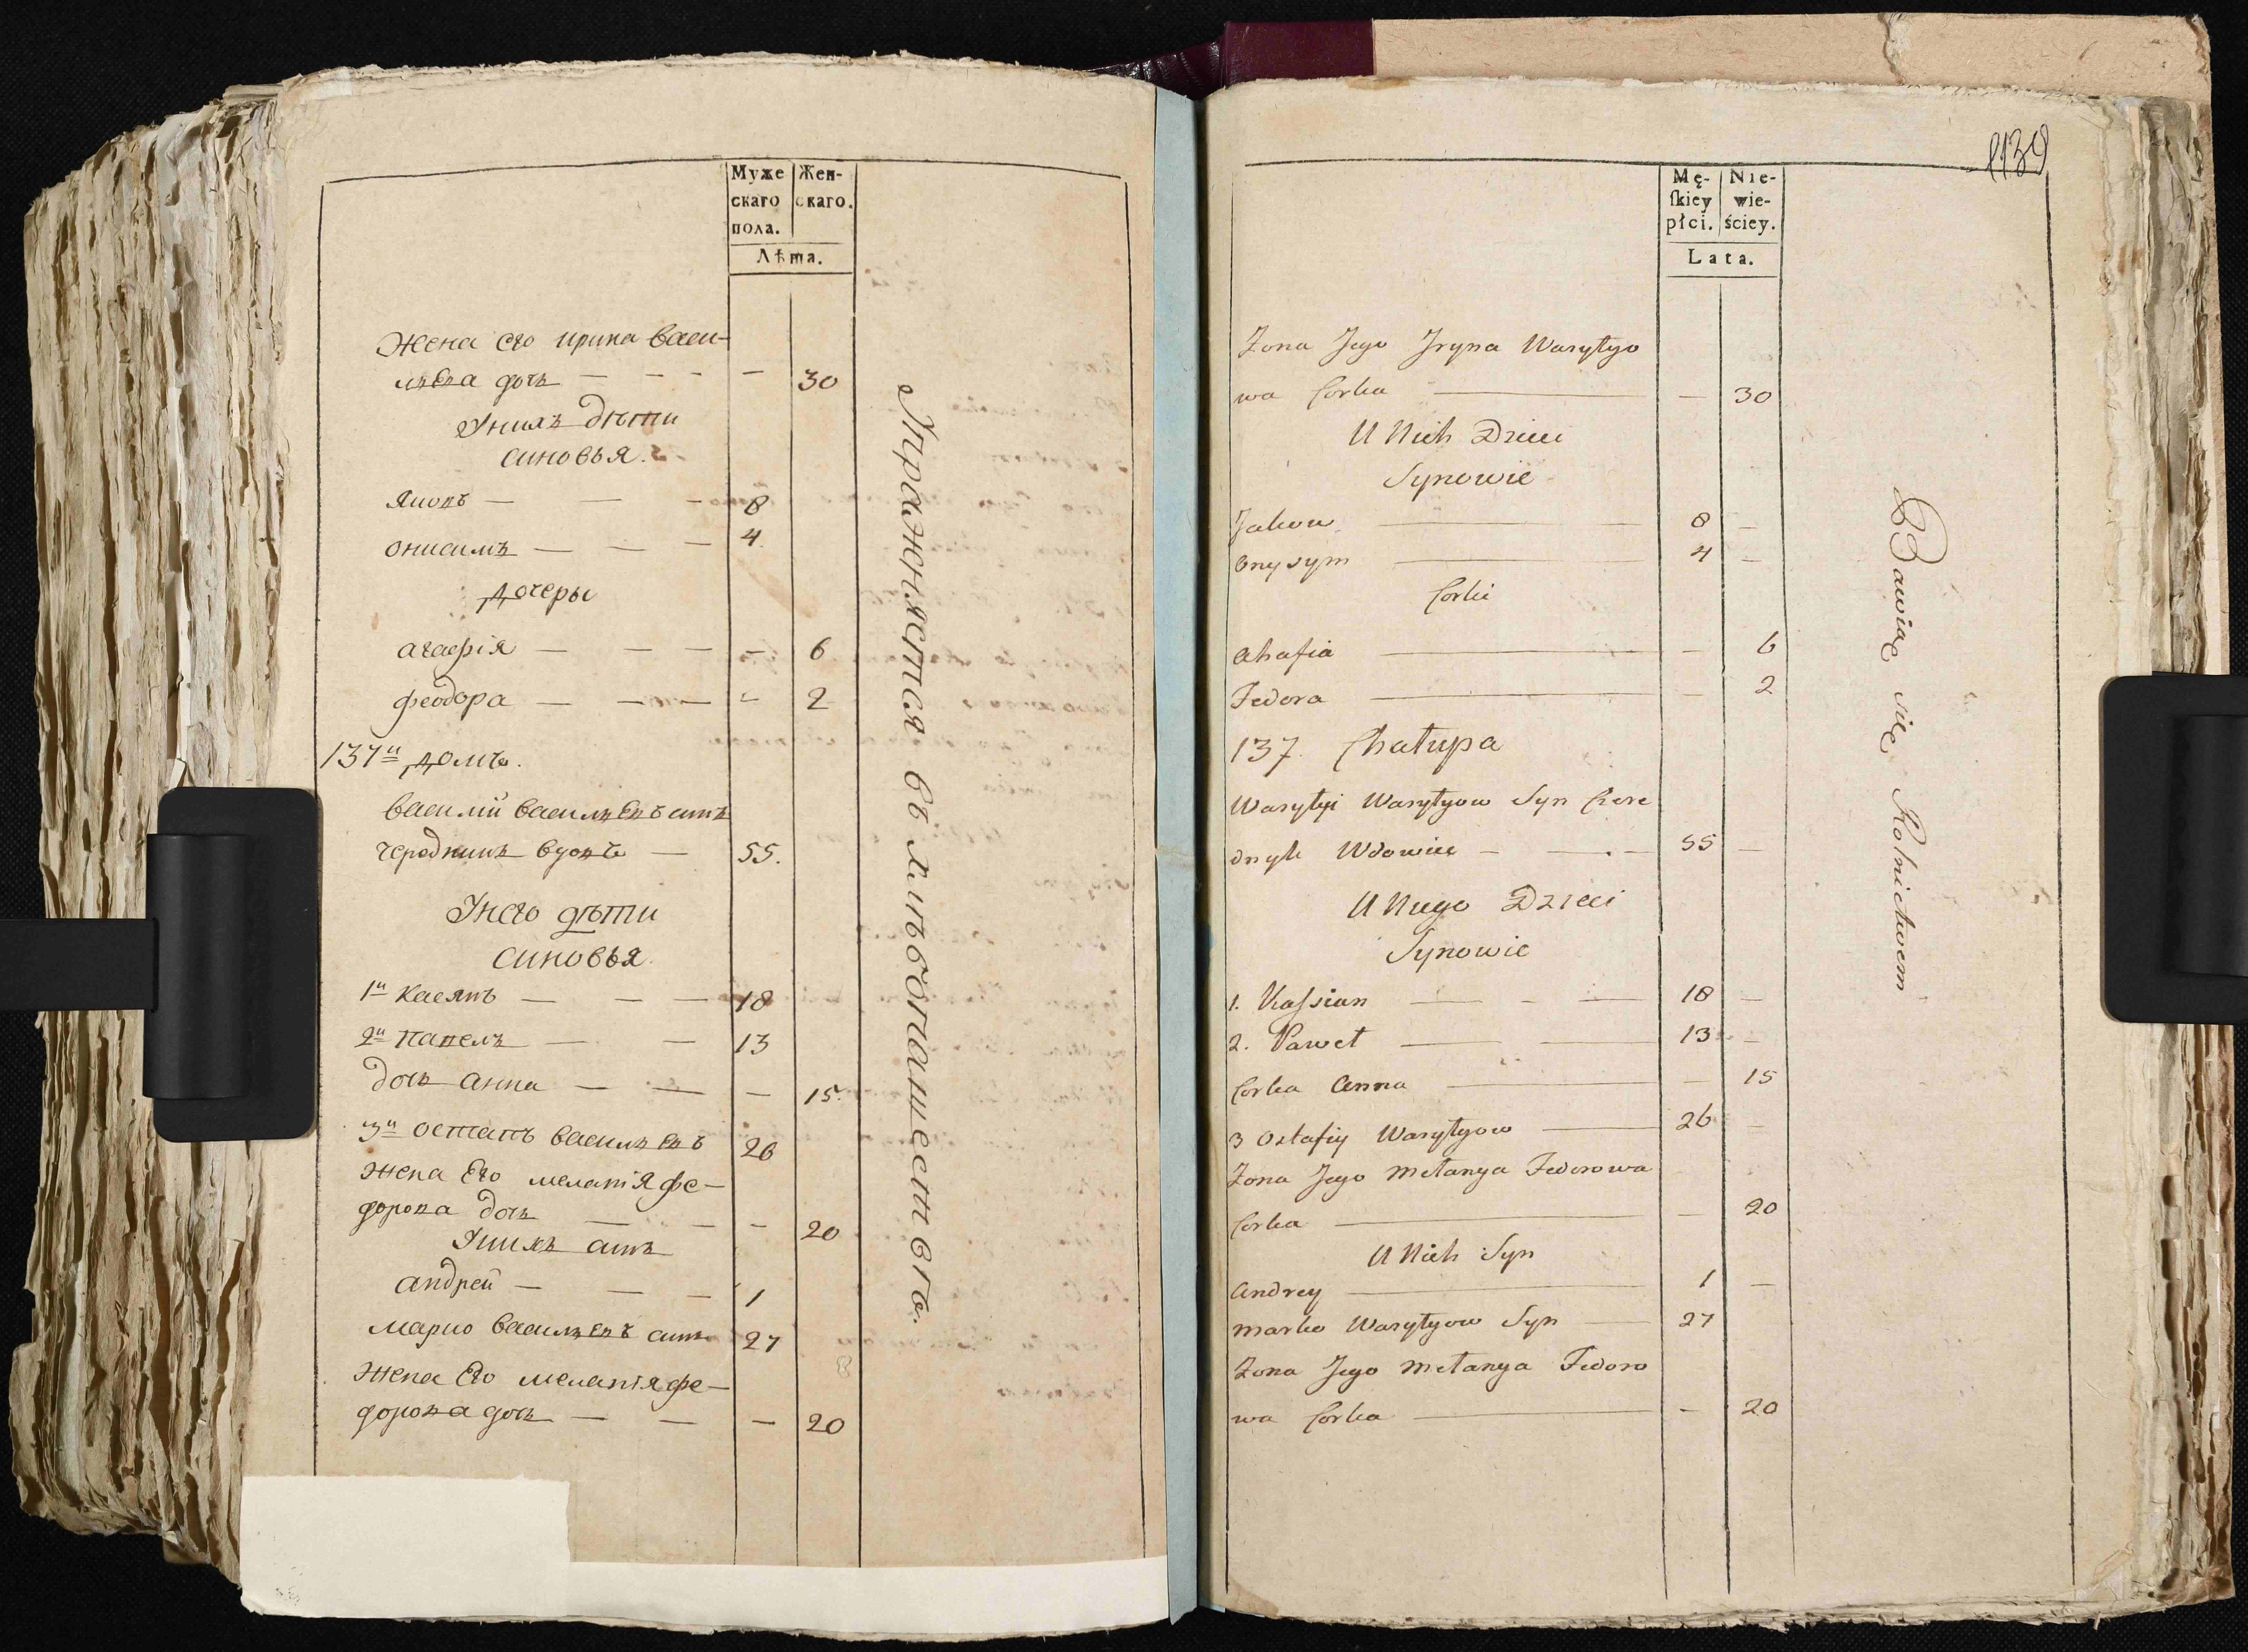 Муже
скаго
пола.
Жен-
скаго.
Лѣта.
Жена его ирина васи-
лѣва дочь — — — — 30
Унихъ дѣти
синовья.
Яковъ — — — 8
онисимъ — — — 4
Дочеры
агафія — — — — 6
феодора — — — — 2
137й домъ.
василий василиевъ синъ
чередникъ вдовъ — 55.
Унего дѣти
синовья.
1й Касянъ — — — 18
2й Павелъ — — 13
дочь анна — — — 15.
3й остапъ василиевъ 26
жена его меланія фе-
дорова дочь — — — 20
Унихъ синъ
андрей — — — 1
марко василиевъ синъ 27
жена его меланія фе-
дорова дочь — — — 20
Упражняется въ хлѣбопашествѣ.
1139
Mę-
ſkiey
płci.
Nie-
wie-
ściey.
Lata.
Żona Jego Jryna Wasylyo
wa Corka — — 30
U Nich Dzieci
Synowie
Jakow — 8 —
Onysym — 4 —
Corki
Ahafia — — 6
Fedora — — 2
137. Chałupa
Wasylyi Wasylyow Syn Czere
dnyk Wdowiec — — 55 —
U Niego Dzieci
Synowie
1. Kaſsian — — — 18 —
2. Paweł — — 13 —
Corka Anna — — 15
3 Ostafiy Wasylyow — 26 —
Żona Jego Mełanya Fedorowa
Corka — — 20
U Nich Syn
Andrey — 1 —
Marko Wasylyow Syn — 27
Żona Jego Mełanya Fedoro
wa Corka — — 20
Bawiąc się Rolnictwem